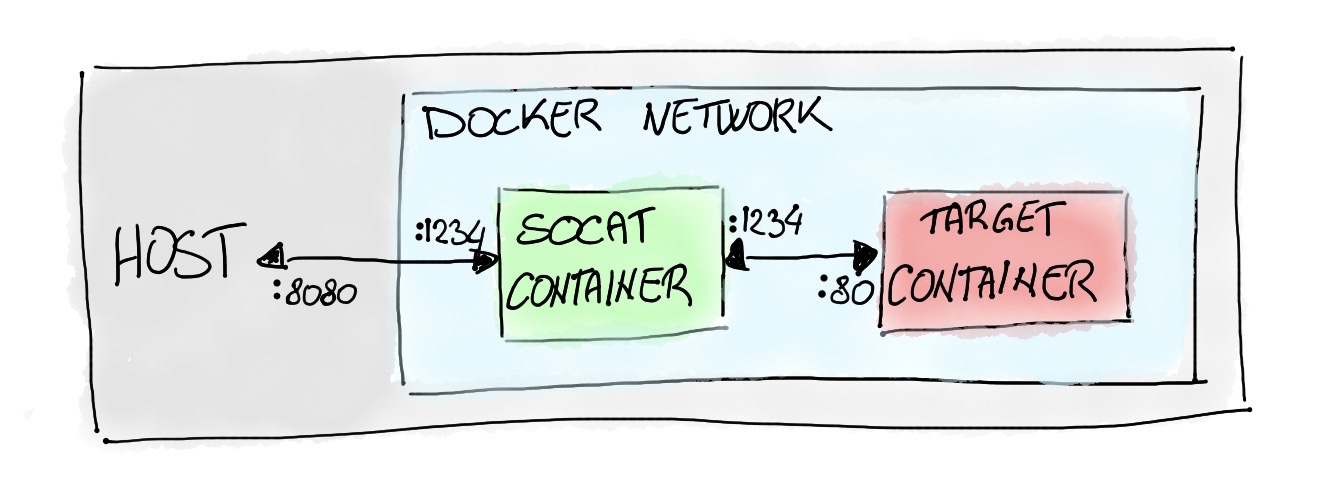 DOCKER NETWORK
HOST
:8080
:1234
SOCAT
CONTAINER
:1234
:80
TARGET
CONTAINER